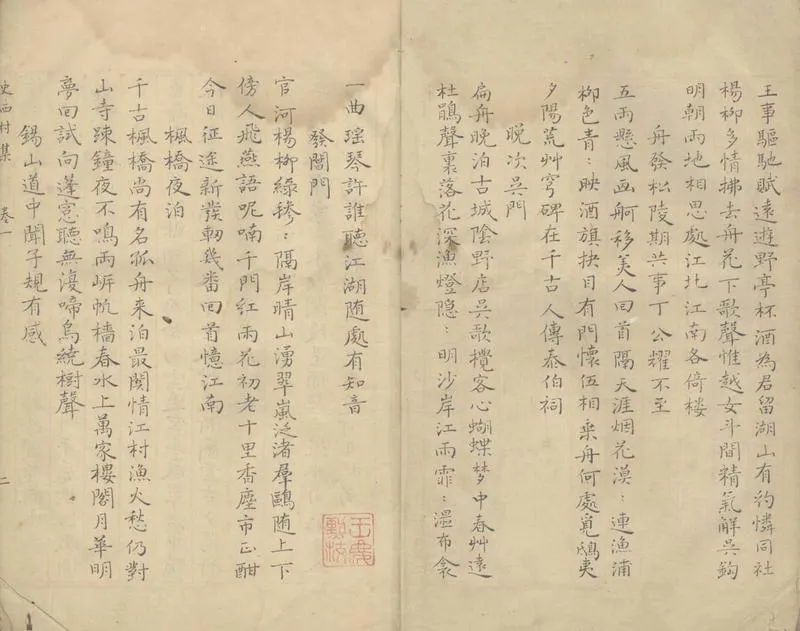 王事驅馳賦遠遊野亭杯酒為君留湖山有約憐同社
楊柳多情拂去舟花下歌聲惟越女斗間精氣解吳鈎
明朝兩地相思處江北江南各倚樓
舟發松陵期共事丁公耀不至
五兩懸風画舸移美人回首隔天涯烟花漠：連漁浦
柳色青：映酒旗抉目有門懷伍相乘舟何處覓鴟夷
夕陽荒艸穹碑在千古人傳泰伯祠
晚次吳門
扁舟晚泊古城陰野店吳歌攪客心蝴蝶梦中春艸遠
杜鵑聲裏落花深漁燈隐：明沙岸江雨霏：溼布衾
一曲瑶琴許誰聽江湖随處有知音
發閶門
官河楊柳綠毿：隔岸晴山湧翠嵐泛渚羣鷗随上下
傍人飛燕語呢喃千門紅雨花初老十里香塵市正酣
今日征途新發軔幾番回首憶江南
楓橋夜泊
千古楓橋尚有名孤舟来泊最関情江村漁火愁仍對
山寺踈鐘夜不鳴兩岸帆檣春水上萬家樓閣月華明
夢回試向蓬窓聽無復啼烏繞樹聲
錫山道中聞子規有感
史西村集 卷一 二